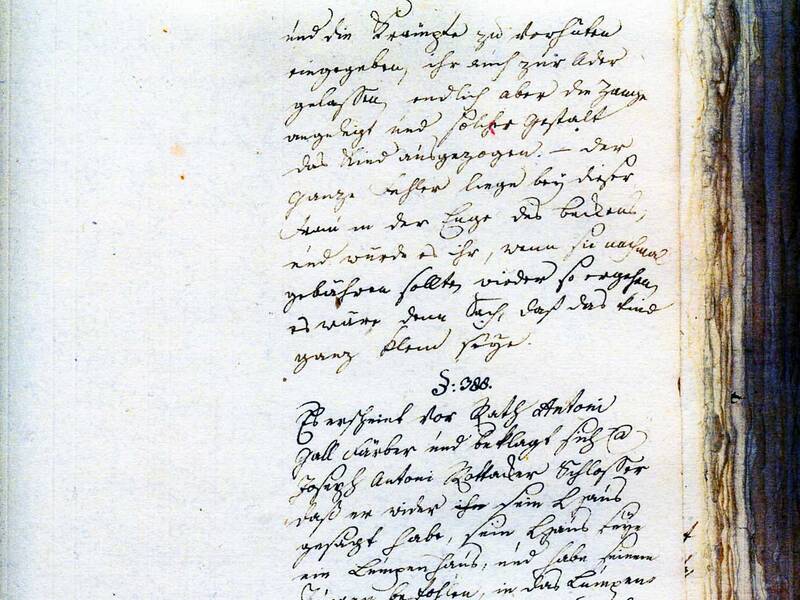 und die Krämpfe zu verhüten
eingegeben, ihr auch zur Ader
gelassen, endlich aber die Zange
angelegt und solcher Gestalt
das Kind ausgezogen. – der
ganze Fehler liege bey dieser
Frau in der Enge des beckens,
und würde es ihr, wenn sie nochmal
gebähren sollte, wieder so ergehen,
es wäre denn Sach, daß das Kind
ganz klein seye.
§: 388.
Es erscheint vor Rath Antoni
Gall Färber und beklagt sich
Joseph Antoni Schlosser
daß er wider ihn sein Haus
gesagt habe, sein Haus seye
ein Lumpenhaus, und habe seinem
befohlen, in das Lumpen-